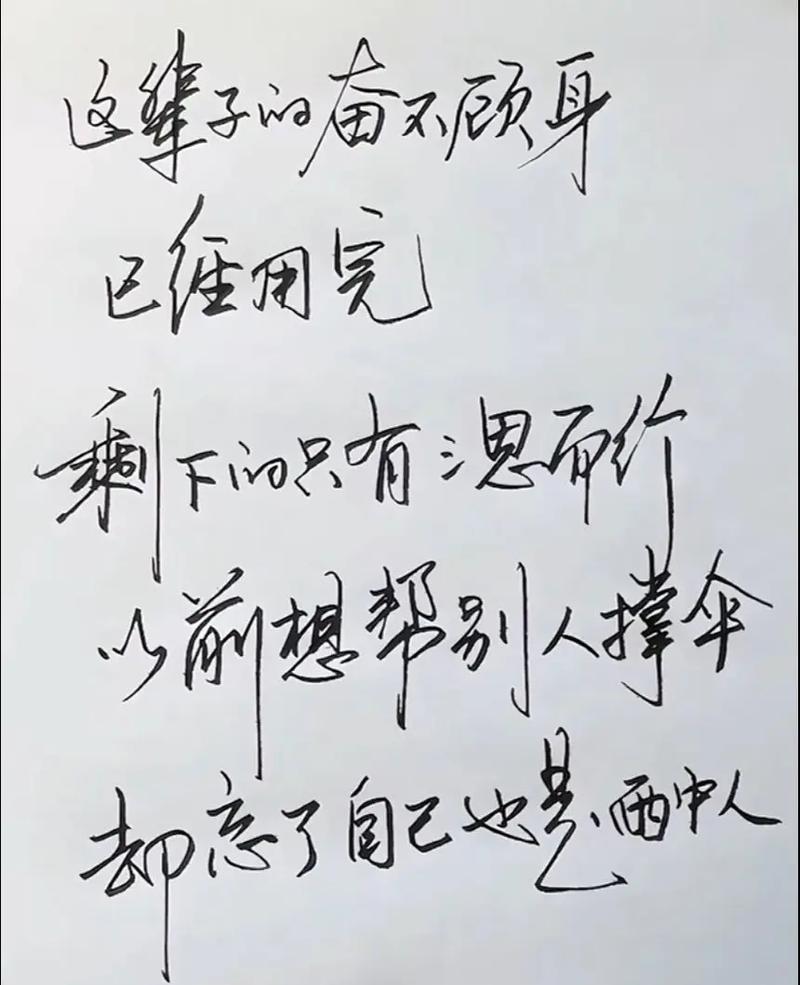 这辈子的奋不顾身
已经用完
剩下的只有三思而行
以前想帮别人撑伞
却忘了自己也是雨中人